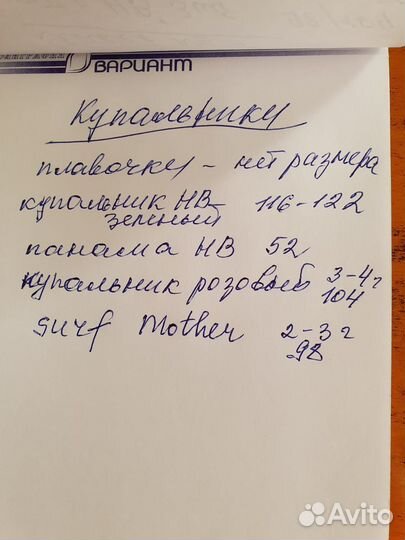 ВАРИАНТ
Купальники
плавочки – нет размера
купальник НВ 116-122
зеленый
панама НВ 52
купальник розовый 3-4г
104
Surf Mother 2-3г
98
Avito